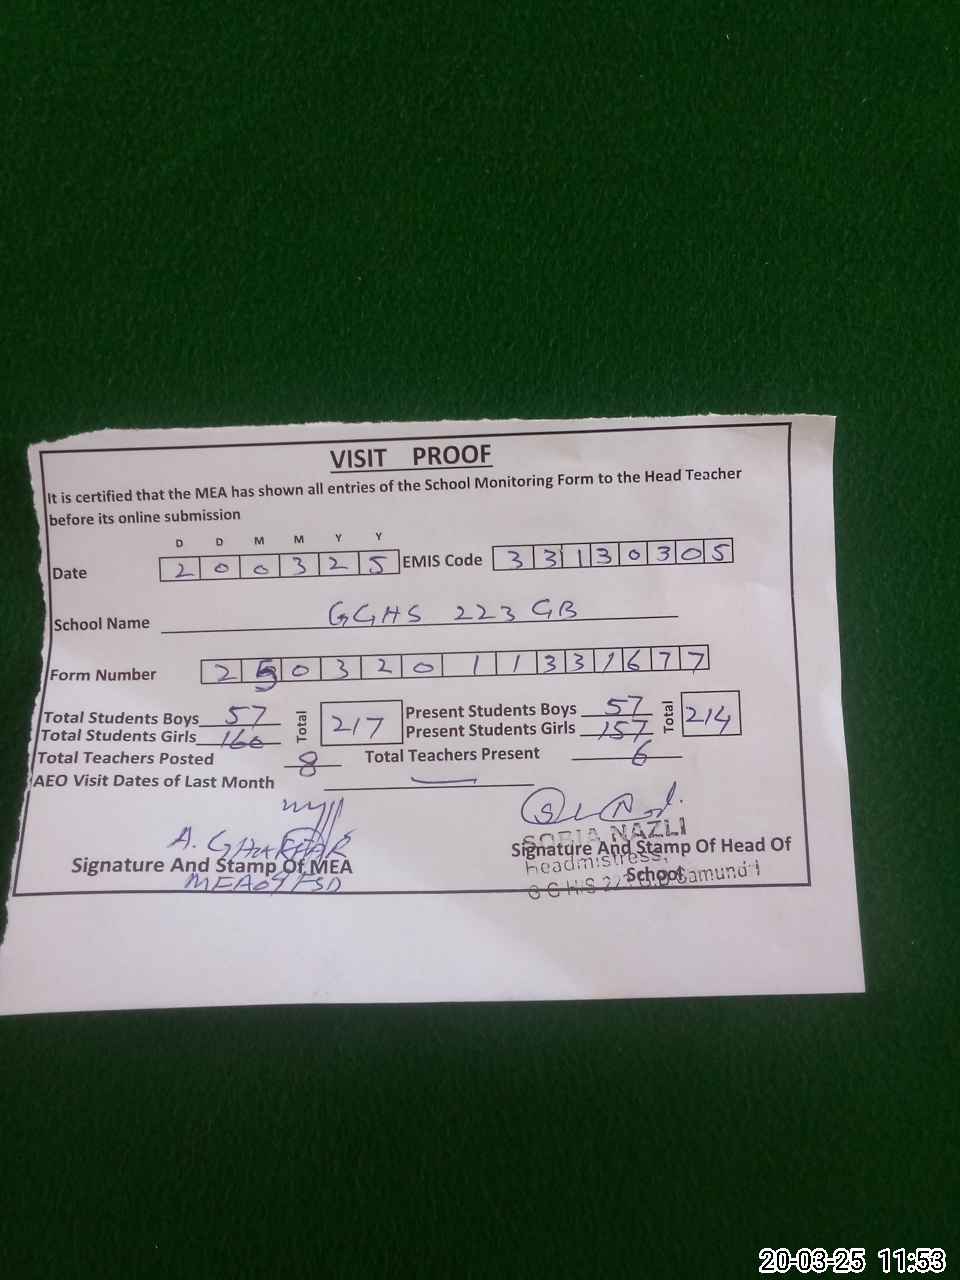 VISIT PROOF
It is certified that the MEA has shown all entries of the School Monitoring Form to the Head Teacher
before its online submission
D D M M Y Y
Date 2 0 0 3 2 5 EMIS Code 3 3 1 3 0 3 0 5
School Name GGHS 223 GB
Form Number 2 5 0 3 2 0 1 1 3 3 1 6 7 7
Total Students Boys 57 Total 217 Present Students Boys 57 Total 214
Total Students Girls 160 Present Students Girls 157
Total Teachers Posted 8 Total Teachers Present 6
AEO Visit Dates of Last Month
A. GHAFFAR
SOBIA NAZLI
Signature And Stamp Of MEA Signature And Stamp Of Head Of
headmistress,
School
G G H S Samundri
20-03-25 11:53